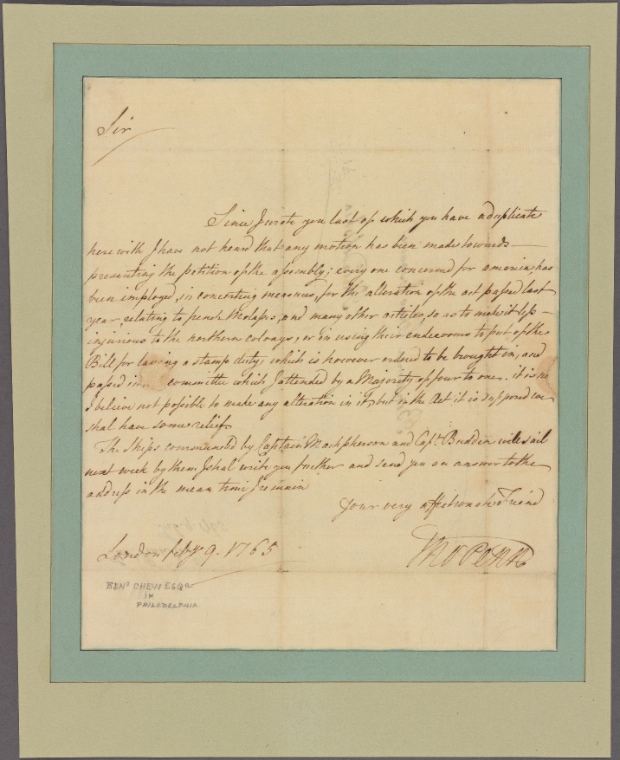 Sir
Since I wrote you last of which you have a duplicate
here with I have not heard that any motion has been made towards
presenting the petition of the assembly; every one concerned for america has
been imployed, in concerting measures, for the alteration of the act passed last
year, relating to french Molasses, and many other articles, so as to make it less
injurious to the northern colonys, or in using their endeavours to put of the
Bill for laving a stamp duty, which is however ordered to be brought in, and
passed in committee which I attended by a Majority of four to one, it is
I beleive not possible to make any alteration in it, but in the Act it is
shal have some relief.
The Ships commanded by Captain Mackpherson and Capt. Budden will sail
next week by them I shal write you further and send you an answer to the
address in the mean time I remain
your very affectionate Friend
Tho Penn
London feby 9. 1765
BENJ CHEW ESQR
IN
PHILADELPHIA